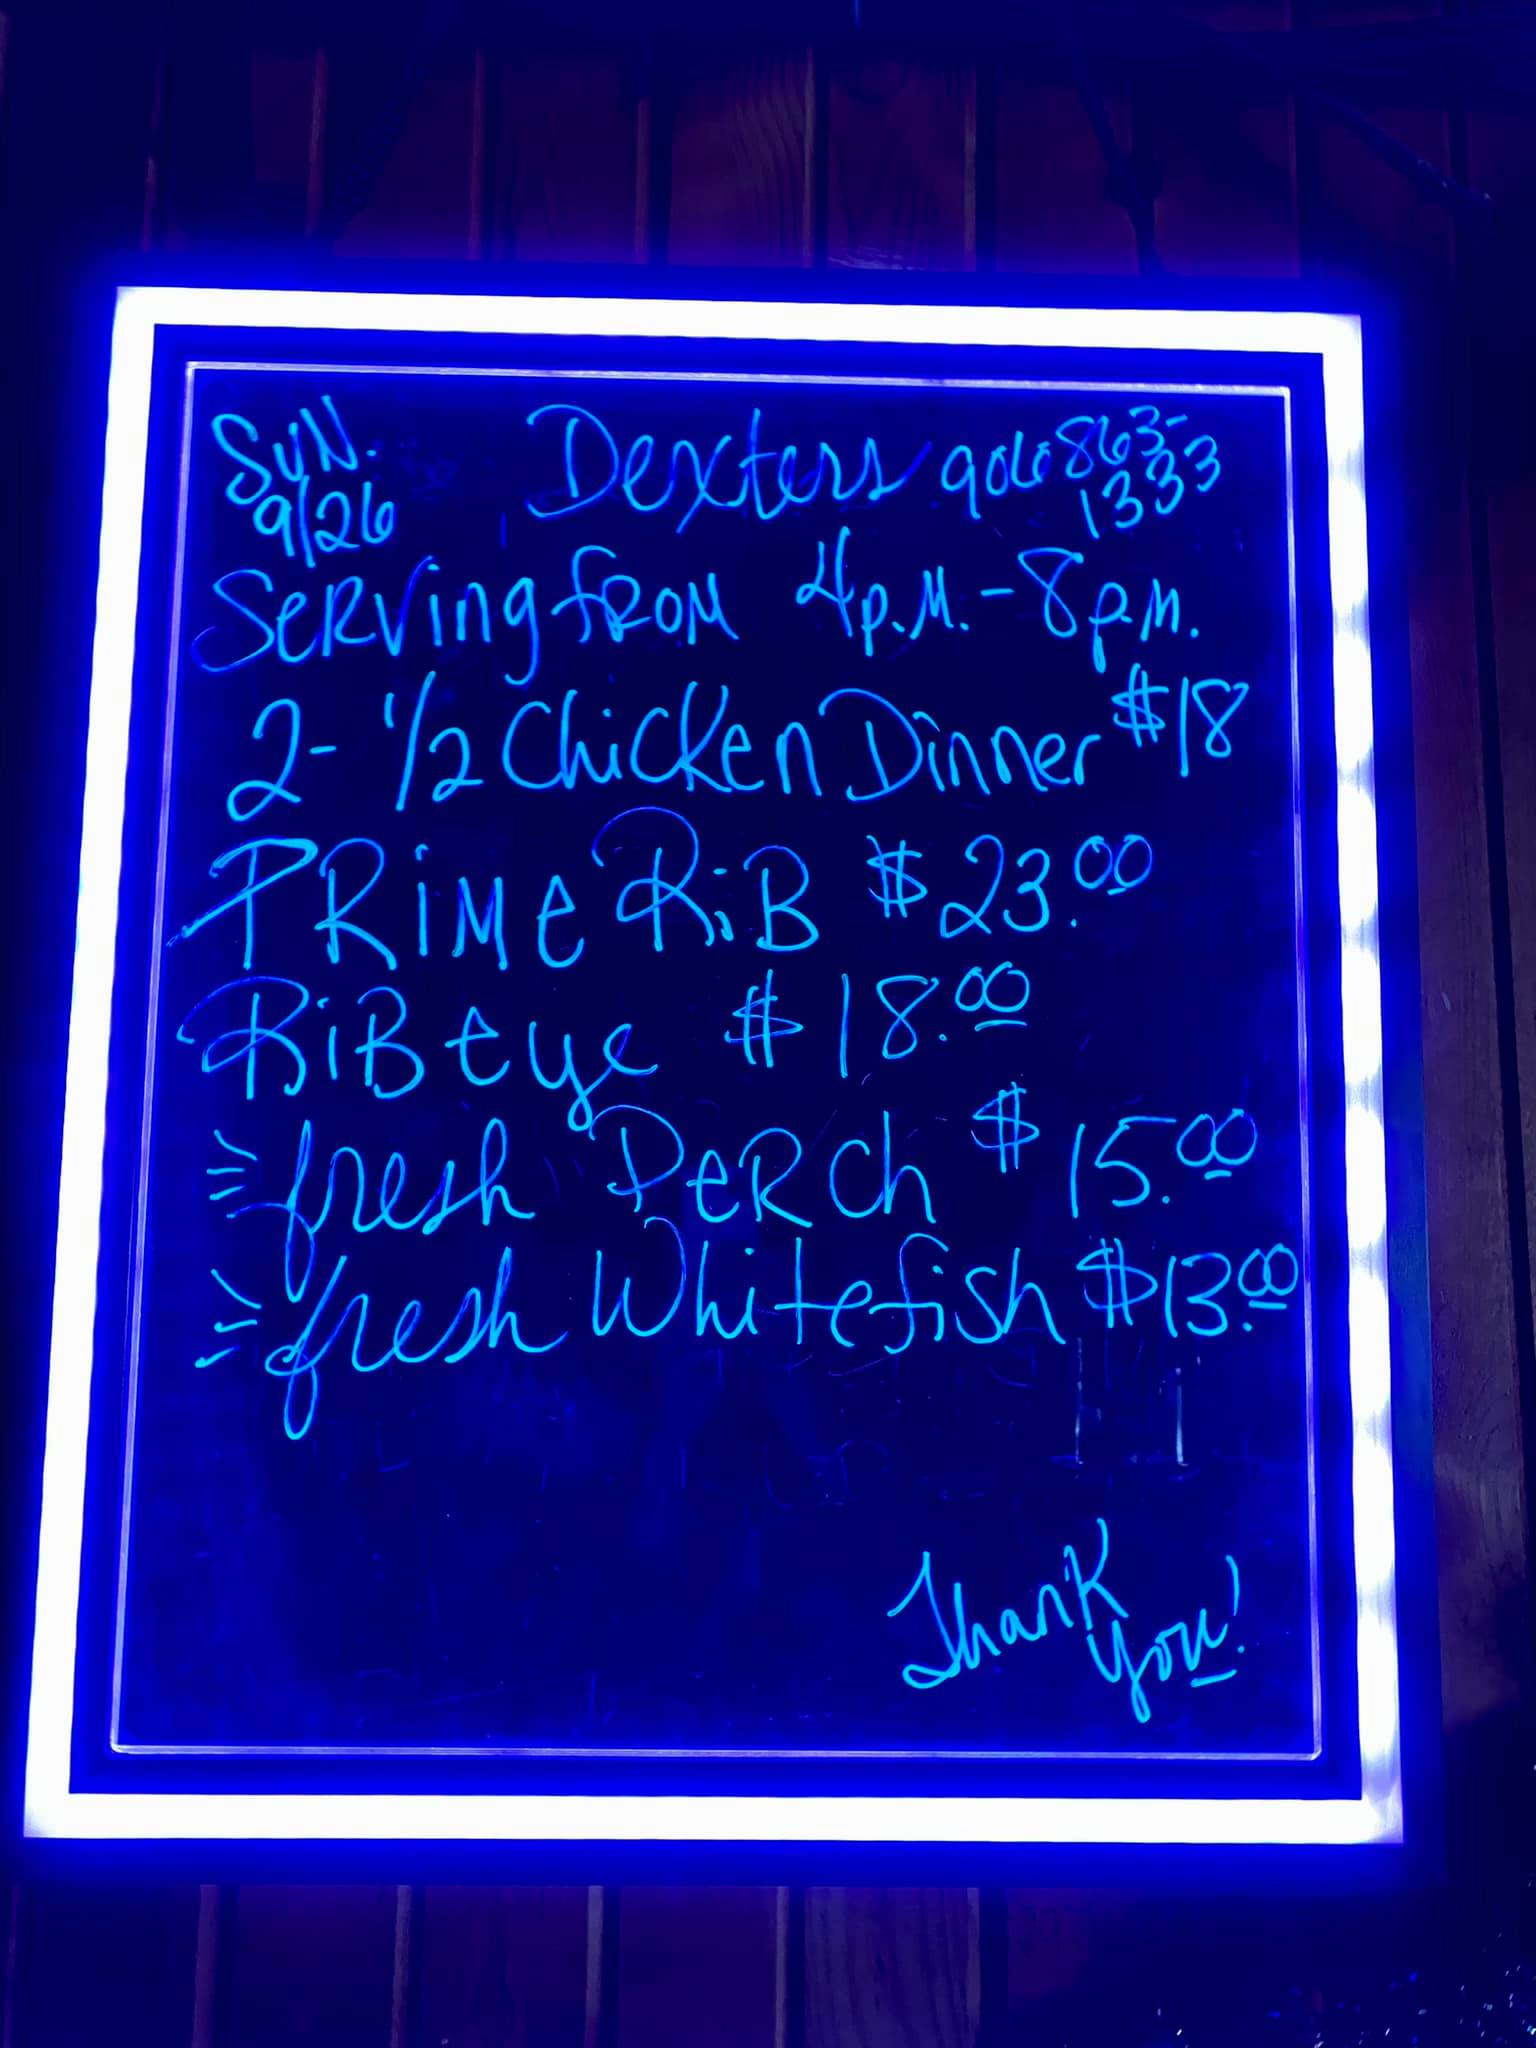 SUN. Dexters 906 863-
9/26 1333
Serving from 4p.m.-8p.m.
2- 1/2 Chicken Dinner $18
PRiMe RiB $23.00
RiBeye $18.00
fresh PeRch $15.00
fresh Whitefish $13.00
Thank
you!